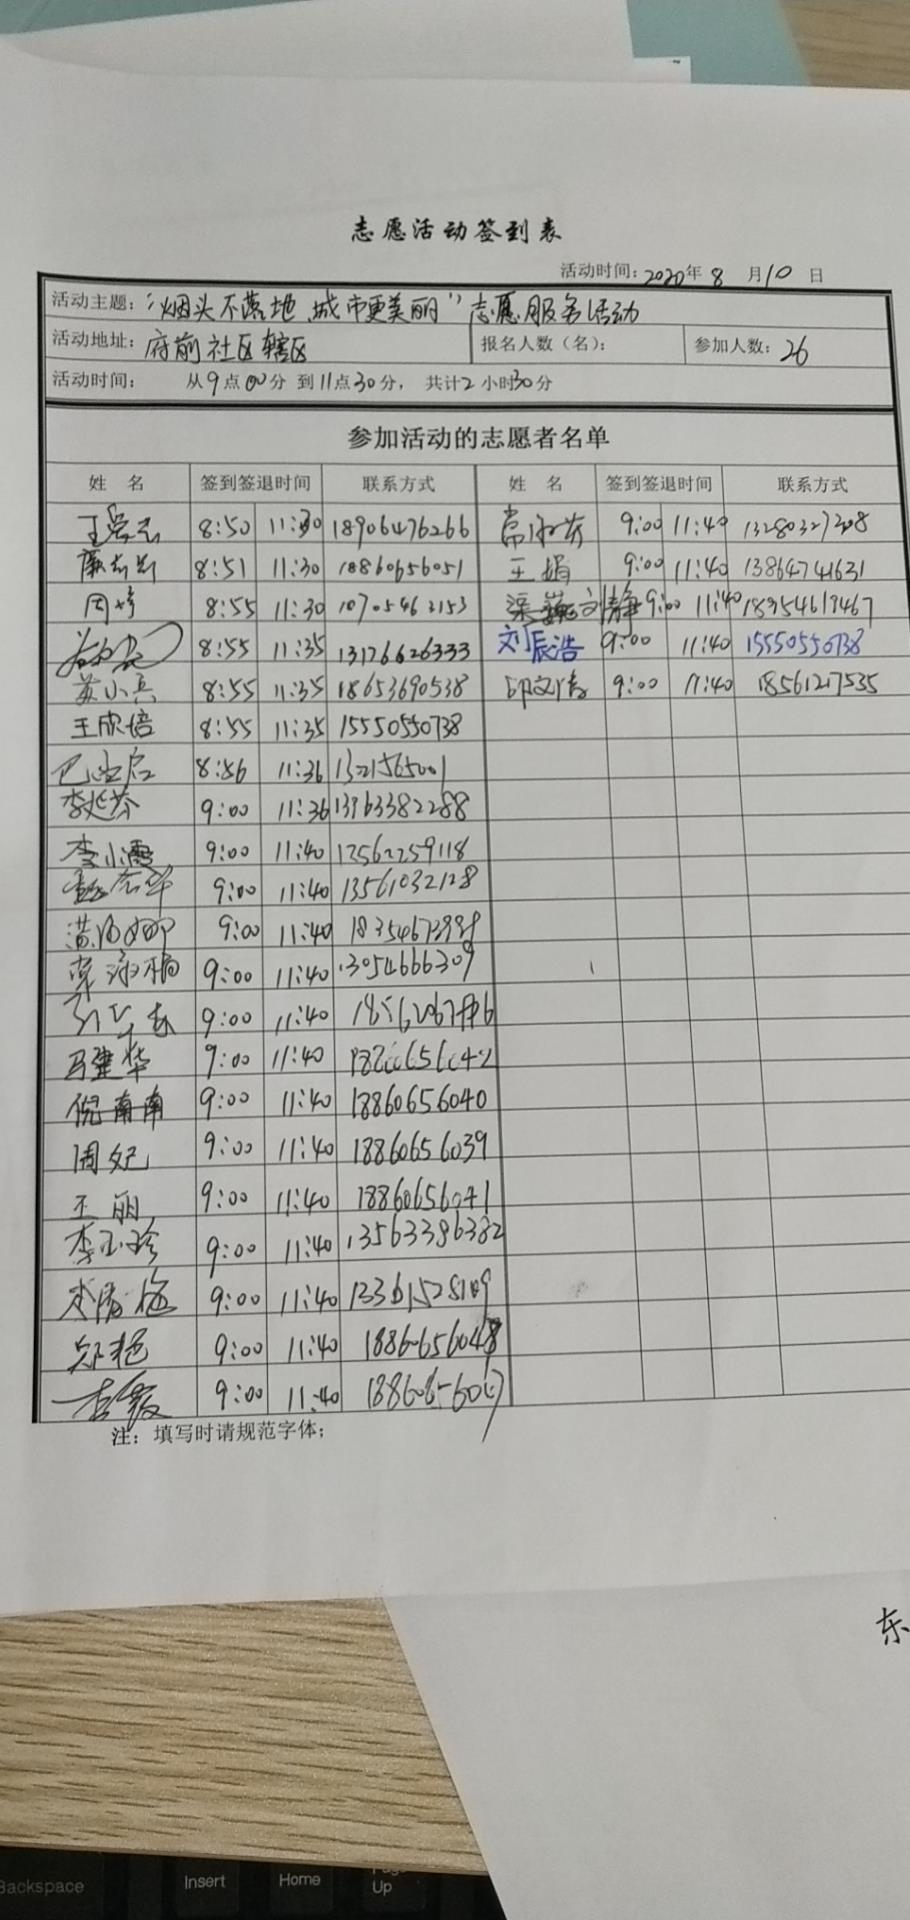 志愿活动签到表
活动时间：2020年8月10日
活动主题："烟头不落地 城市更美丽"志愿服务活动
活动地址：府前社区辖区 报名人数（名）： 参加人数：26
活动时间： 从9点00分 到11点30分， 共计2小时30分
参加活动的志愿者名单
姓 名 签到签退时间 联系方式 姓 名 签到签退时间 联系方式
8:50 11:30 18906476266 9:00 11:40 13280327208
8:51 11:30 18860656051 王娟 9:00 11:40 13864741631
8:55 11:30 刘静 9:00 11:40 18954619467
8:55 11:35 13176626333 刘辰浩 9:00 11:40 15550550738
苏小兵 8:55 11:35 18653690538 9:00 11:40 18561217535
王欣培 8:55 11:35 15550550738
8:56 11:36
李延芬 9:00 11:36 13963382288
李小霞 9:00 11:40 13562259118
9:00 11:40 13561032128
9:00 11:40
9:00 11:40 13054666309
9:00 11:40
冯建华 9:00 11:40
倪南南 9:00 11:40 18860656040
周妃 9:00 11:40 18860656039
王丽 9:00 11:40 18860656041
李玉珍 9:00 11:40 13563386382
9:00 11:40
郑艳 9:00 11:40 18860656048
李霞 9:00 11:40
注：填写时请规范字体；
东
Backspace Insert Home Page Up